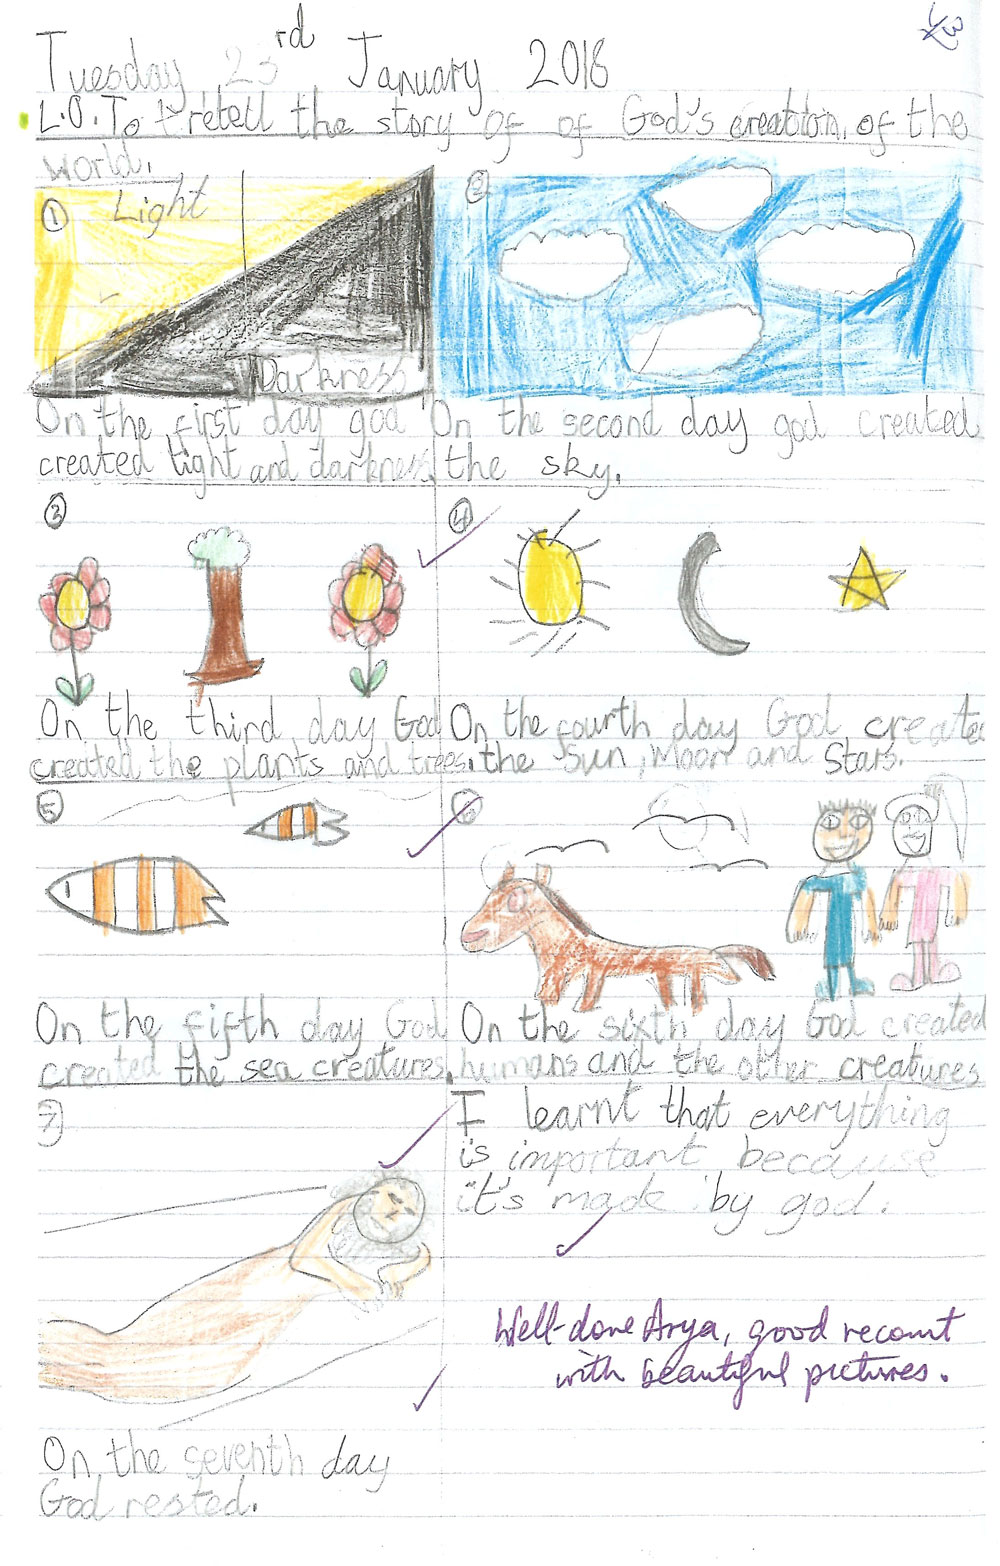 Tuesday 23rd January 2018
L.O. To retell the story of of God's creation, of the
world.
① Light
Darkness
②
On the first day god
created light and darkness.
On the second day god created
the sky.
③
④
On the third day God
created the plants and trees.
On the fourth day God created
the Sun, Moon and Stars.
⑤
⑥
On the fifth day God
created the sea creatures.
On the sixth day God created
humans and the other creatures
⑦
I learnt that everything
is important because
it's made by god.
Well-done Arya, good recount
with beautiful pictures.
On the seventh day
God rested.